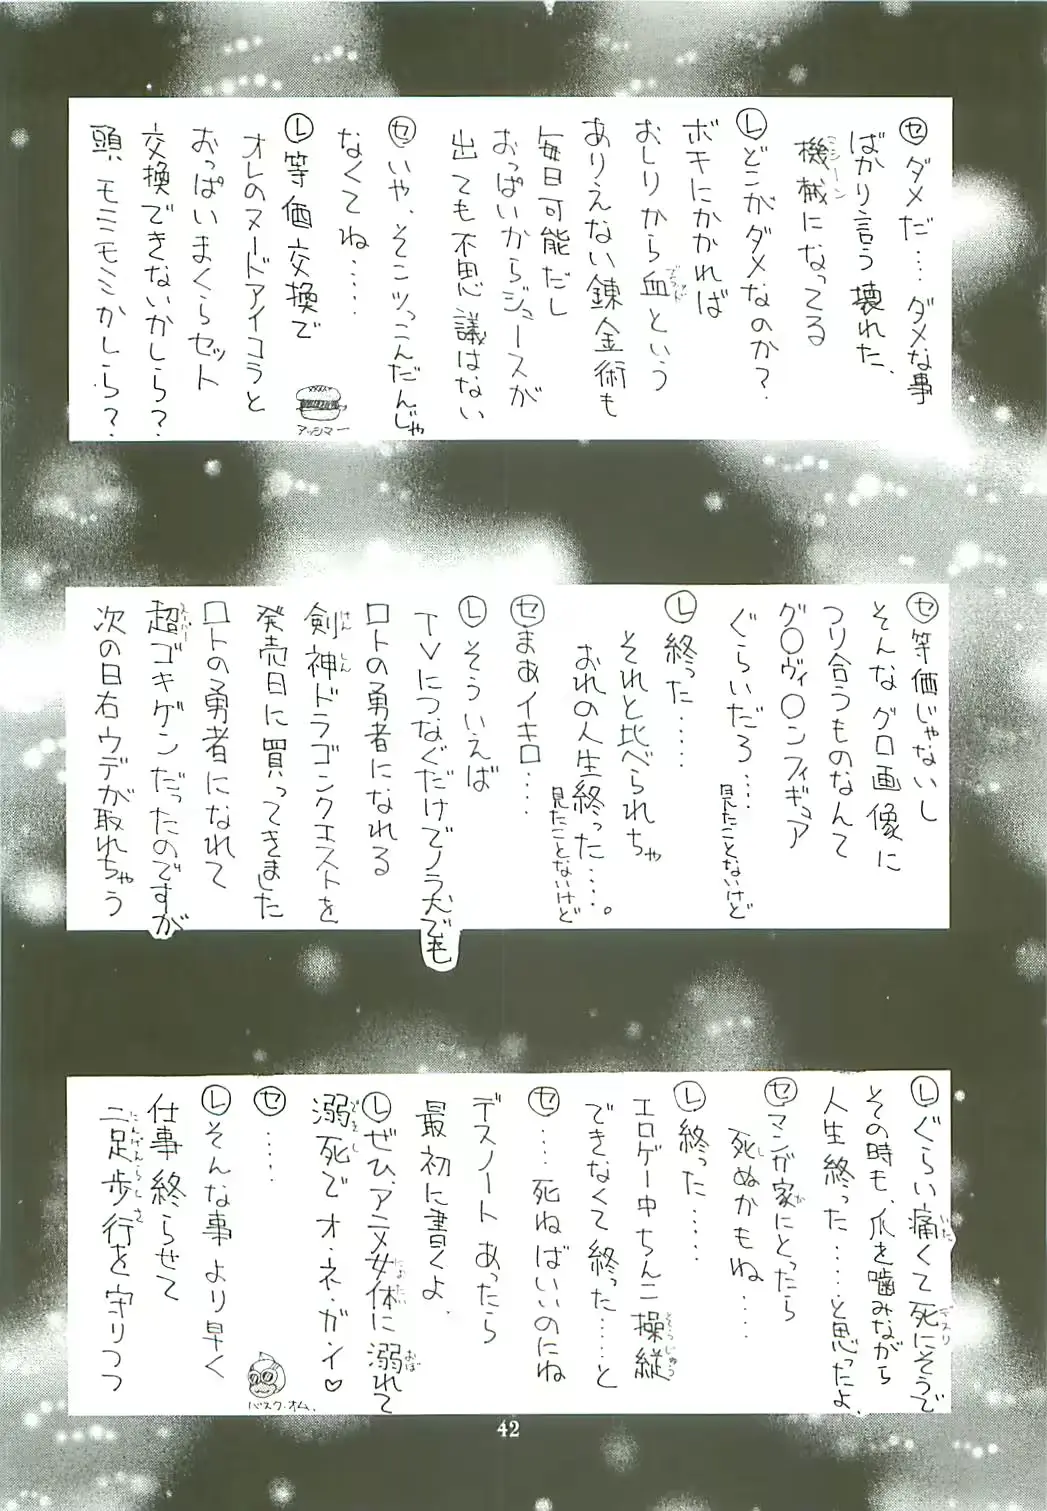 ㋝ダメだ‥‥ダメな事
ばかり言う壊れた、
機械になってる
マシーン
㋹どこがダメなのか?
ボキにかかれば
おしりから血という
ありえない錬金術も
毎日可能だし
おっぱいからジュースが
出ても不思議はない
㋝いや、そこツっこんだんじゃ
なくてね‥‥
㋹等価交換で
オレのヌードアイコラと
おっぱいまくらセット
交換できないかしら?
頭、モミモミかしら?
アッシマー
㋝等価じゃないし
そんなグロ画像に
つり合うものなんて
グ○ヴィ○ンフィギュア
ぐらいだろ‥‥見たことないけど
㋹終った‥‥‥
それと比べられちゃ
おれの人生終った‥‥。
見たことないけど
㋝まあイキロ‥‥
㋹そういえば
TVにつなぐだけでノラ犬でも
ロトの勇者になれる
剣神ドラゴンクエストを
けんしん
発売日に買ってきました
ロトの勇者になれて
超ゴキゲンだったのですが
スーパー
次の日右ウデが取れちゃう
㋹ぐらい痛くて死にそうで
いた
その時も、爪を噛みながら
人生終った‥‥‥と思ったよ、
㋝マンガ家にとったら
死ぬかもね‥‥
㋹終った‥‥‥
エロゲー中ちんこ操縦
そうじゅう
できなくて終った‥‥‥と
㋝‥‥死ねばいいのにね
デスノートあったら
最初に書くよ、
㋹ぜひ、アニメ女体に溺れて
にょたい
おぼ
溺死でオ・ネ・ガ・イ♡
できし
㋝‥‥
㋹そんな事より早く
仕事終らせて
二足歩行を守りつつ
バスク・オム、
42